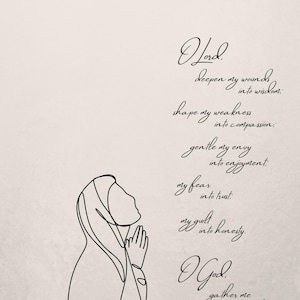 O Lord,
deepen my wounds
into wisdom;
shape my weakness
into compassion;
gentle my envy
into enjoyment,
my fear
into trust,
my guilt
into honesty.
O God,
gather me